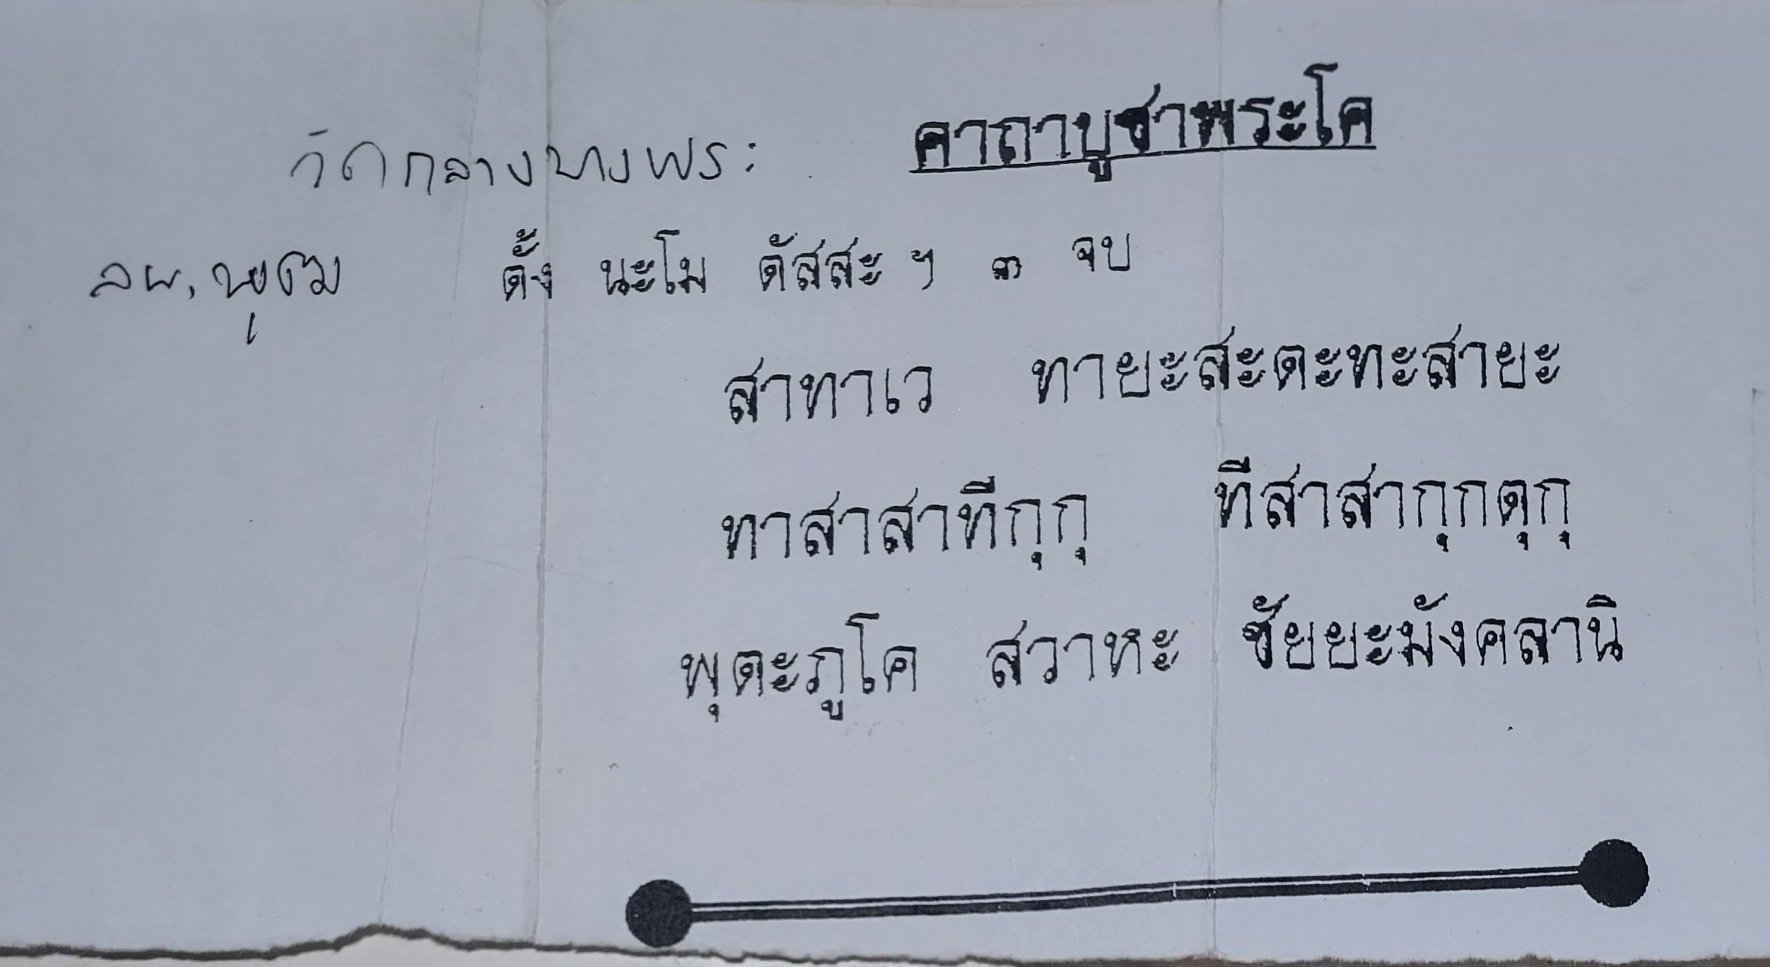 วัดกลางบางพระ คาถาบูชาพระโค
ลพ. ตั้ง นะโม ตัสสะ ฯ ๓ จบ
สาทาเว ทายะสะตะทะสายะ
ทาสาสาทีกุกุ ทีสาสากุกตุกุ
พุตะภูโค สวาหะ ชัยยะมังคลานิ